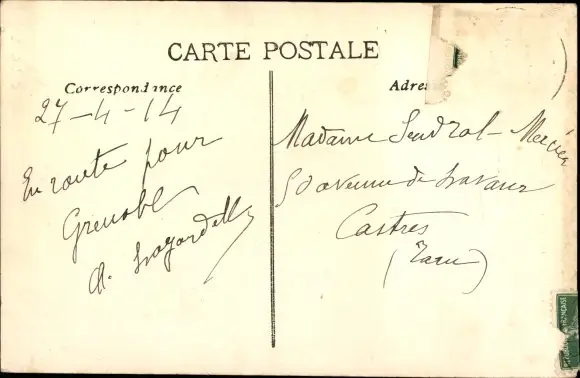 CARTE POSTALE
Correspondance
27-4-14
En route pour
Grenoble
Adres
Madame Sendral-Mercier
50 avenue de Lavaur
Castres
(Tarn)